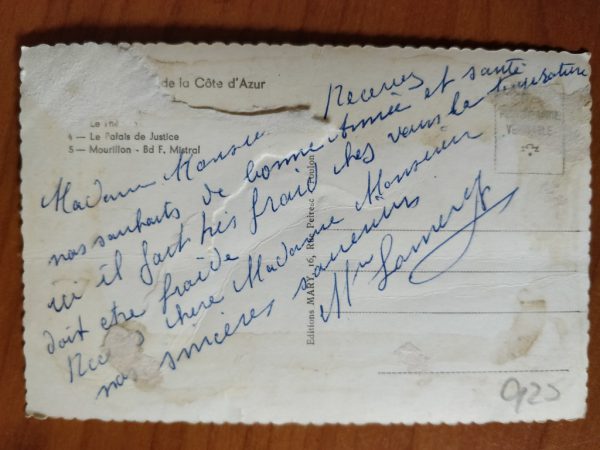 de la Côte d'Azur
Le Thé
4 — Le Palais de Justice
5 — Mourillon - Bd F. Mistral
Madame Monsieu Recevez
nos souhaits de bonne Année et santé
ici il fait très froid chez vous la température
doit etre froide
Recevez chère Madame Monsieur
nos sincères souvenirs
Editions MAR, 16, Rue Peiresc Toulon
VERITABLE
0,25